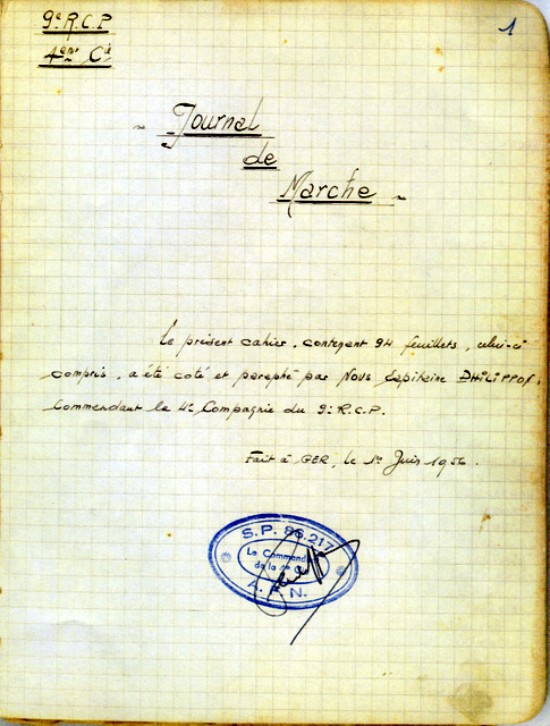 9e R.C.P
1
4eme Cie
Journal
de
Marche
Le présent cahier, contenant 94 feuillets, celui-ci
compris, a été coté et paraphé par Nous Capitaine PHILIPPOF,
Commandant la 4e Compagnie du 9e R.C.P.
Fait à GER, le 1er Juin 1956.
S.P. 86.217
Le Commandant
de la Cie
A.F.N.